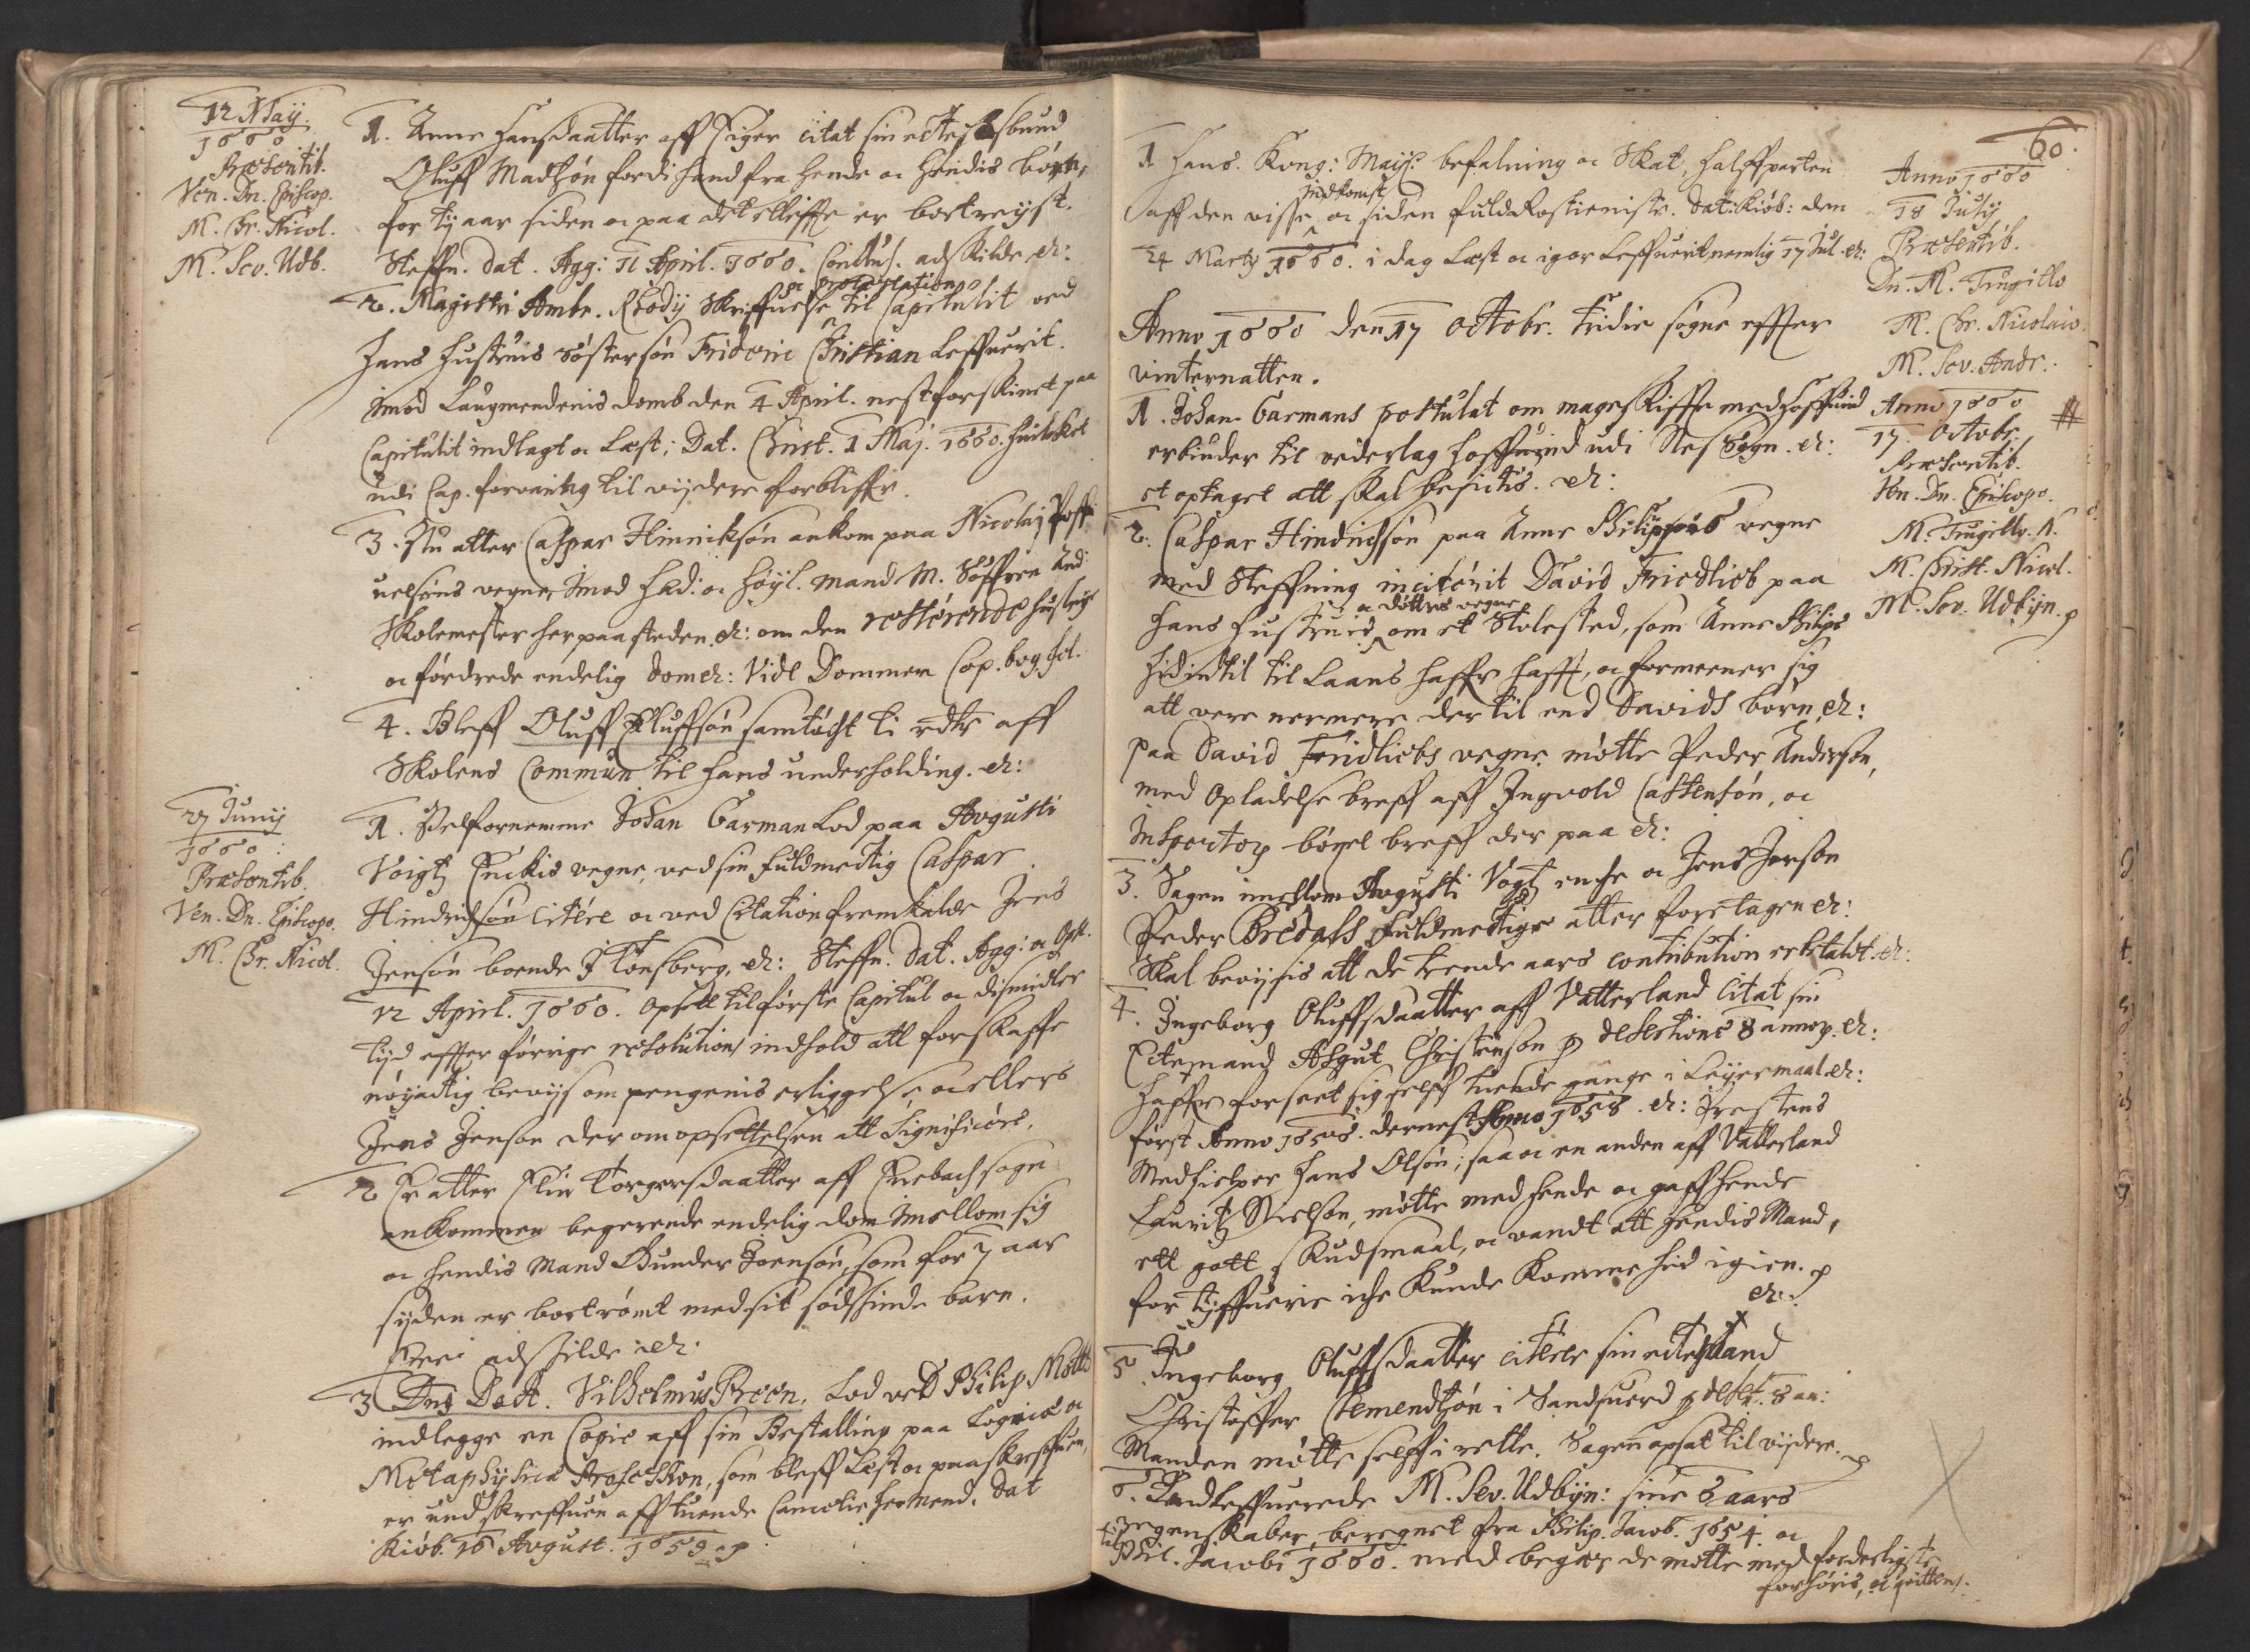 12 Maij
1660
Præsentib.
Ven. Dn. Episcop.
M. Chr. Nicol.
M. Sev. Udb.
1. Anne Hansdaatter aff Eiger citat sin ectehosbund
Oluff Madtzøn fordi hand fra hende oc hendis børn,
for tij aar siden oc paa det elleffte er bortreijst.
Steffn. dat. Agg: 11 April. 1660. adskilde etc:
oc protestation
2. Magistri Ambr. Rhodij Skriffuelse til Capitulit ved
hans hustruis Søstersøn Frideric Christian leffuerit.
imod Laugmendenis domb den 4 April. nestforskinet paa
Capitulit indlagt oc læst; Dat. Christ. 1 Maj. 1660. huilcket
udi Cap. forvaring til vijdere forbliffr.
3. Nu atter Caspar Hinrichsøn ankom paa Nicolaj Poff
uelsens vegne imod Hæd: oc Høyl. mand M. Søffren And:
Skolemester her paa steden etc: om den resterende husleije
oc fordrede endelig dom etc: Vide Dommen Cap. bog fol.
4. Bleff Oluff Oluffsøn samtøcht ti rdlr aff
Skolens Commun til hans underholding. etc:
27 Junij
1660:
Præsentib.
Ven. Dn. Episcopo.
M. Chr. Nicol.
1. Velfornemme Johan Garman lod paa Augusti
Voigtz Enckis vegne, ved sin fuldmectig Caspar
Hindrichsøn citere oc ved Citation fremkalde Jens
Jensøn boende i Tønsberg, etc: Steffn. dat. Agg: oc Ops.
12 April. 1660. opsatt til første Capitul oc dismidler
tijd effter forrige resolutions indhold att forskaffe
nøyactig bevijs om pengenis erliggelse, oc ellers
Jens Jensøn der om opsettelsen att significere.
2 Er atter Elin Torgersdaatter aff Enebach sogn
ankommen begerende endelig dom imellom sig
oc hendis Mand Gunder Joensøn, som for 7 aar
sijden er bortrømt med sit sødskinde barn.
Ere adskilde etc:
3 Dns Doct. Vilhelmus Been. Lod ved Philip Motts
indlegge en Copie aff sin Bestalling paa Logices oc
Metaphysices Profession, som bleff læst oc paaskreffuen,
er undskreffuen aff tuende Cancelie herrmend. Dat
Kiøb. 16 August. 1659.
60.
1 Hans Kong: Mayss. befalning oc Skat, halffparten
Indkomst
aff den visse oc siden fulde Rostieniste. Dat: Kiøb: den
24 Martij 1660. i dag læst oc igor leffuerit nemlig 17 Jul. etc:
Anno 1660
18 Julij
Præsentib.
Dn. M. Trugillo
M. Chr. Nicolaio.
M. Sev. Andr.
Anno 1660 den 17 octobr. tridie søgne effter
vinternatten.
Anno 1660
17. octobr.
Præsentib.
Ven. Dn. Episcopo.
M. Trugillo. N.
M. Christ. Nicol.
M. Sev. Udbyn.
1. Johan Garmans postulat om mageskiffte med Hoffuind
erbiuder til vederlag Hoffuind udi Nes Sogn. etc:
et optaget att skal besictis. etc:
2. Caspar Hindrichsøn paa Anne Philippis vegne
med Steffning inciterit David Friedlieb paa
oc døttres vegne
hans hustruis om et Stolested, som Anne Philips
hidindtil til Laans haffr hafft, oc formeener sig
att vere nermere der til end Davids børn, etc:
Paa David Fridliebs vegne møtte Peder Andersøn,
med Opladelse breff aff Ingvold Castensøn, oc
Inspectorn bøxel breff der paa etc:
3. Sagen imellom Augusti Vogtz enche oc Jens Jensøn
Peder Bredals fuldmectige atter foretagen etc:
Skal bevijsis att de trende aars contribution erstatt. etc:
4. Ingeborg Oluffsdaatter aff Vatterland citat sin
Ectemand Asgut Christensøn desertions 8 annor. etc:
haffr forseet sig selff tuende gange i Leijermaal. etc:
først Anno 1656. dernest Anno 1658. etc: Prestens
Medhielper Hans Olsøn; saa oc en anden aff Vatterland
Lauritz Nielsøn, møtte med hende oc gaff hende
ett gott skudsmaal, oc vandt att hendis Mand,
for tyffuerie iche kunde komme hid igien.
etc:
5. Ingeborg Oluffsdaatter citerer sin ectehosband
Christoffer Clemendtzøn i Sandsuerd desert. 8 an:
Manden møtte selff i rette. Sagen opsat til vijdere.
6. Indleffuerede M. Sev. Udbyn: sine 6 aars
regenskaber, beregnet fra Philip. Jacob. 1654. oc
til Phil. Jacobi 1660. med begær de motte med forderligste
forhøris, oc qvittens.